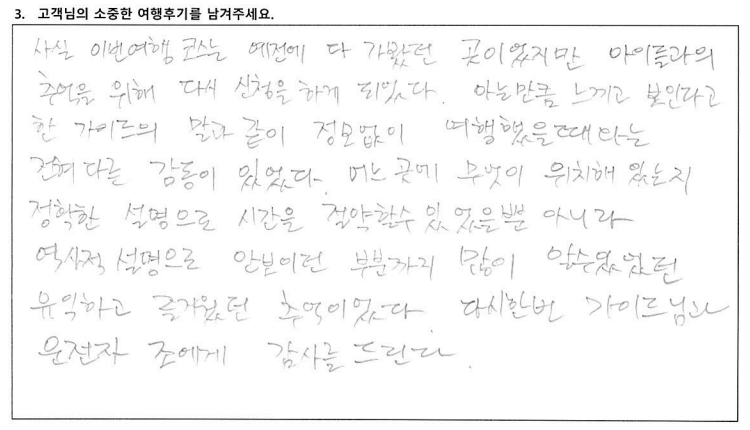 3. 고객님의 소중한 여행후기를 남겨주세요.
사실 이번여행 코스는 예전에 다 가봤던 곳이었지만 아이들과의
추억을 위해 다시 신청을 하게 되었다. 아는만큼 느끼고 보인다고
한 가이드의 말과 같이 정보없이 여행했을때와는
전혀 다른 감동이 있었다. 어느 곳에 무엇이 위치해 있는지
정확한 설명으로 시간을 절약할수 있었을뿐 아니라
역사적 설명으로 안보이던 부분까지 많이 알수있었던
유익하고 즐거웠던 추억이었다. 다시한번 가이드님과
운전자 조에게 감사를 드린다.